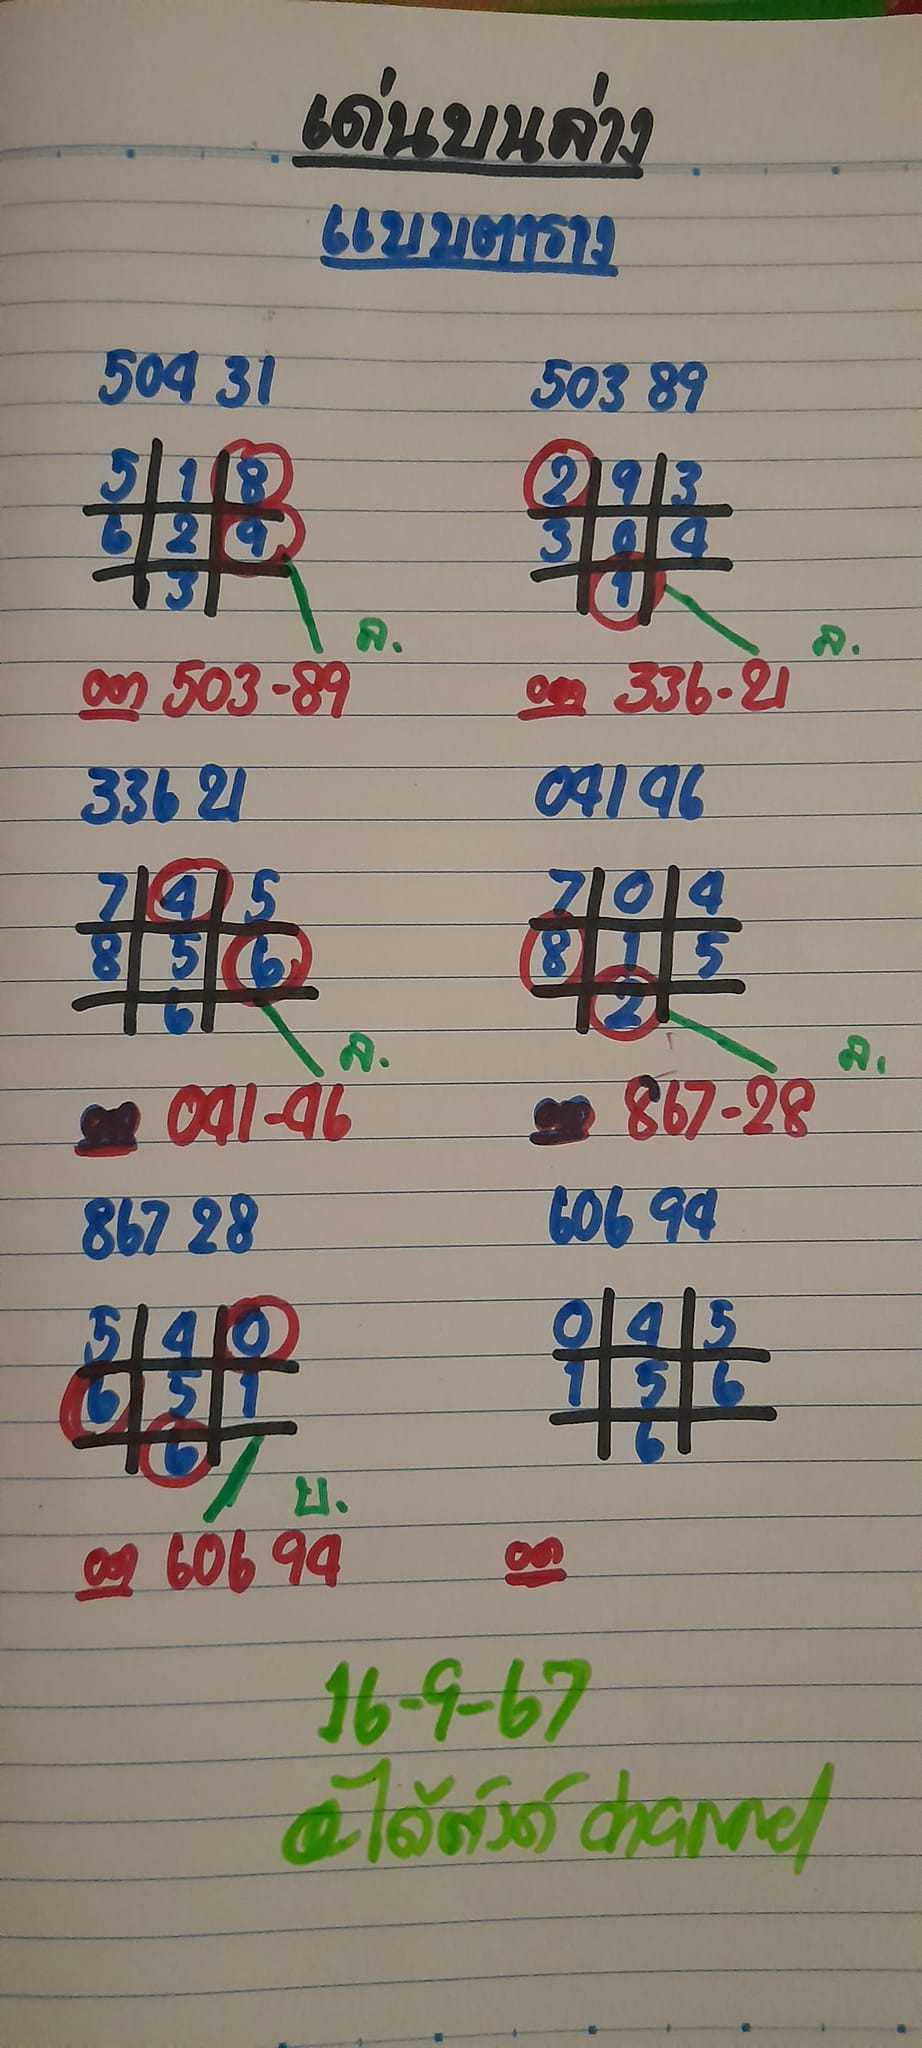 เด่นบนล่าง
แบบตาราง
504 31
503 89
5 1 8
6 2 9
3
2 9 3
3 0 4
1
ล.
ล.
ออก 503-89
ออก 336-21
336 21
041 46
7 4 5
8 5 6
6
7 0 4
8 1 5
2
ล.
ล.
041-46
867-28
867 28
606 94
5 4 0
6 5 1
6
0 4 5
1 5 6
6
บ.
ออก 606 94
ออก
16-9-67
channel